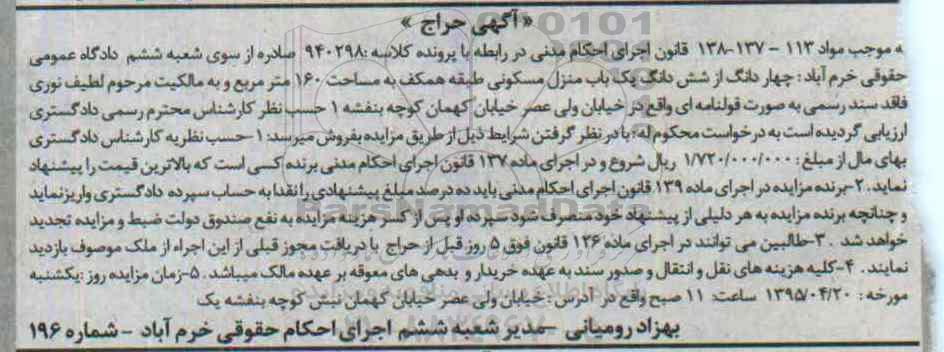 « آگهی حراج »
به موجب مواد ۱۱۳ - ۱۳۷-۱۳۸ قانون اجرای احکام مدنی در رابطه با پرونده کلاسه :۹۴۰۲۹۸ صادره از سوی شعبه ششم دادگاه عمومی
حقوقی خرم آباد : چهار دانگ از شش دانگ یک باب منزل مسکونی طبقه همکف به مساحت ۱۶۰ متر مربع و به مالکیت مرحوم لطیف نوری
فاقد سند رسمی به صورت قولنامه ای واقع در خیابان ولی عصر خیابان کهمان کوچه بنفشه ۱ حسب نظر کارشناس محترم رسمی دادگستری
ارزیابی گردیده است به درخواست محکوم له ؛ با در نظر گرفتن شرایط ذیل از طریق مزایده بفروش میرسد: ۱-حسب نظریه کارشناس دادگستری
بهای مال از مبلغ : ۱/۷۲۰/۰۰۰/۰۰۰ ریال شروع و در اجرای ماده ۱۳۷ قانون اجرای احکام مدنی برنده کسی است که بالاترین قیمت را پیشنهاد
نماید . ۲-برنده مزایده در اجرای ماده ۱۳۹ قانون اجرای احکام مدنی باید ده درصد مبلغ پیشنهادی را نقدا به حساب سپرده دادگستری واریز نماید
و چنانچه برنده مزایده به هر دلیلی از پیشنهاد خود منصرف شود سپرده او پس از کسر هزینه مزایده به نفع صندوق دولت ضبط و مزایده تجدید
خواهد شد . ۳-طالبین می توانند در اجرای ماده ۱۲۶ قانون فوق ۵ روز قبل از حراج با دریافت مجوز قبلی از این اجراء از ملک موصوف بازدید
نمایند . ۴-کلیه هزینه های نقل و انتقال و صدور سند به عهده خریدار و بدهی های معوقه بر عهده مالک میباشد . ۵-زمان مزایده روز :یکشنبه
مورخه : ۱۳۹۵/۰۴/۲۰ ساعت: ۱۱ صبح واقع در آدرس : خیابان ولی عصر خیابان کهمان نبش کوچه بنفشه یک
بهزاد رومیانی -مدیر شعبه ششم اجرای احکام حقوقی خرم آباد - شماره ۱۹۶
ParsNamadData